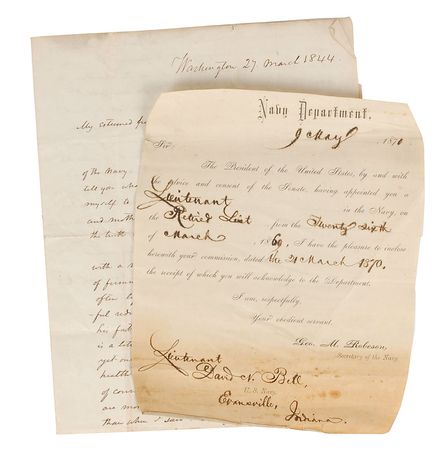 Washington 27 March 1844.
My esteemed
of the Navy
tell you
myself to
and
with a
of
often
ful
her
is a
yet
health
of
are
than when I saw
Navy Department,
9 May, 1870
Sir:
The President of the United States, by and with
the advice and consent of the Senate, having appointed you a
Lieutenant in the Navy, on
the Retired List from the Twenty sixth
of March, 1869, I have the pleasure to inclose
herewith your commission, dated the 21 March 1870,
the receipt of which you will acknowledge to the Department.
I am, respectfully,
Your obedient servant,
Geo. M. Robeson,
Secretary of the Navy.
Lieutenant
David N. Bell,
U. S. Navy,
Evansville,
Indiana.